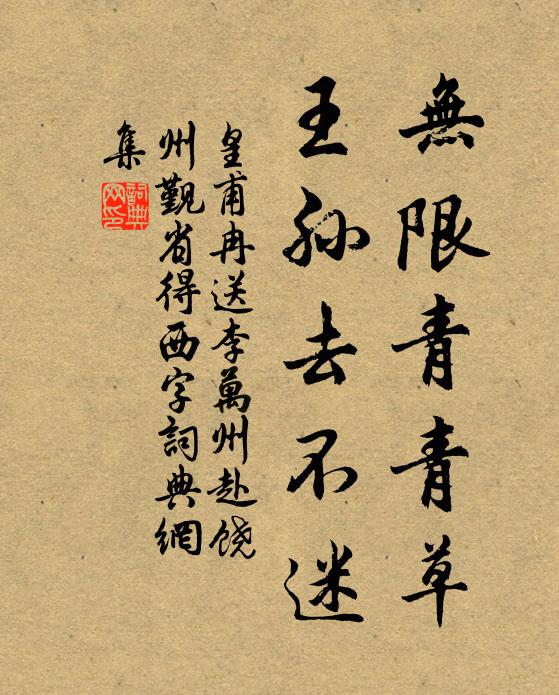 無限青青草
王孫去不迷
皇甫冉送李萬州赴饒
州覲省得西字詞典網
集
詞典
网印